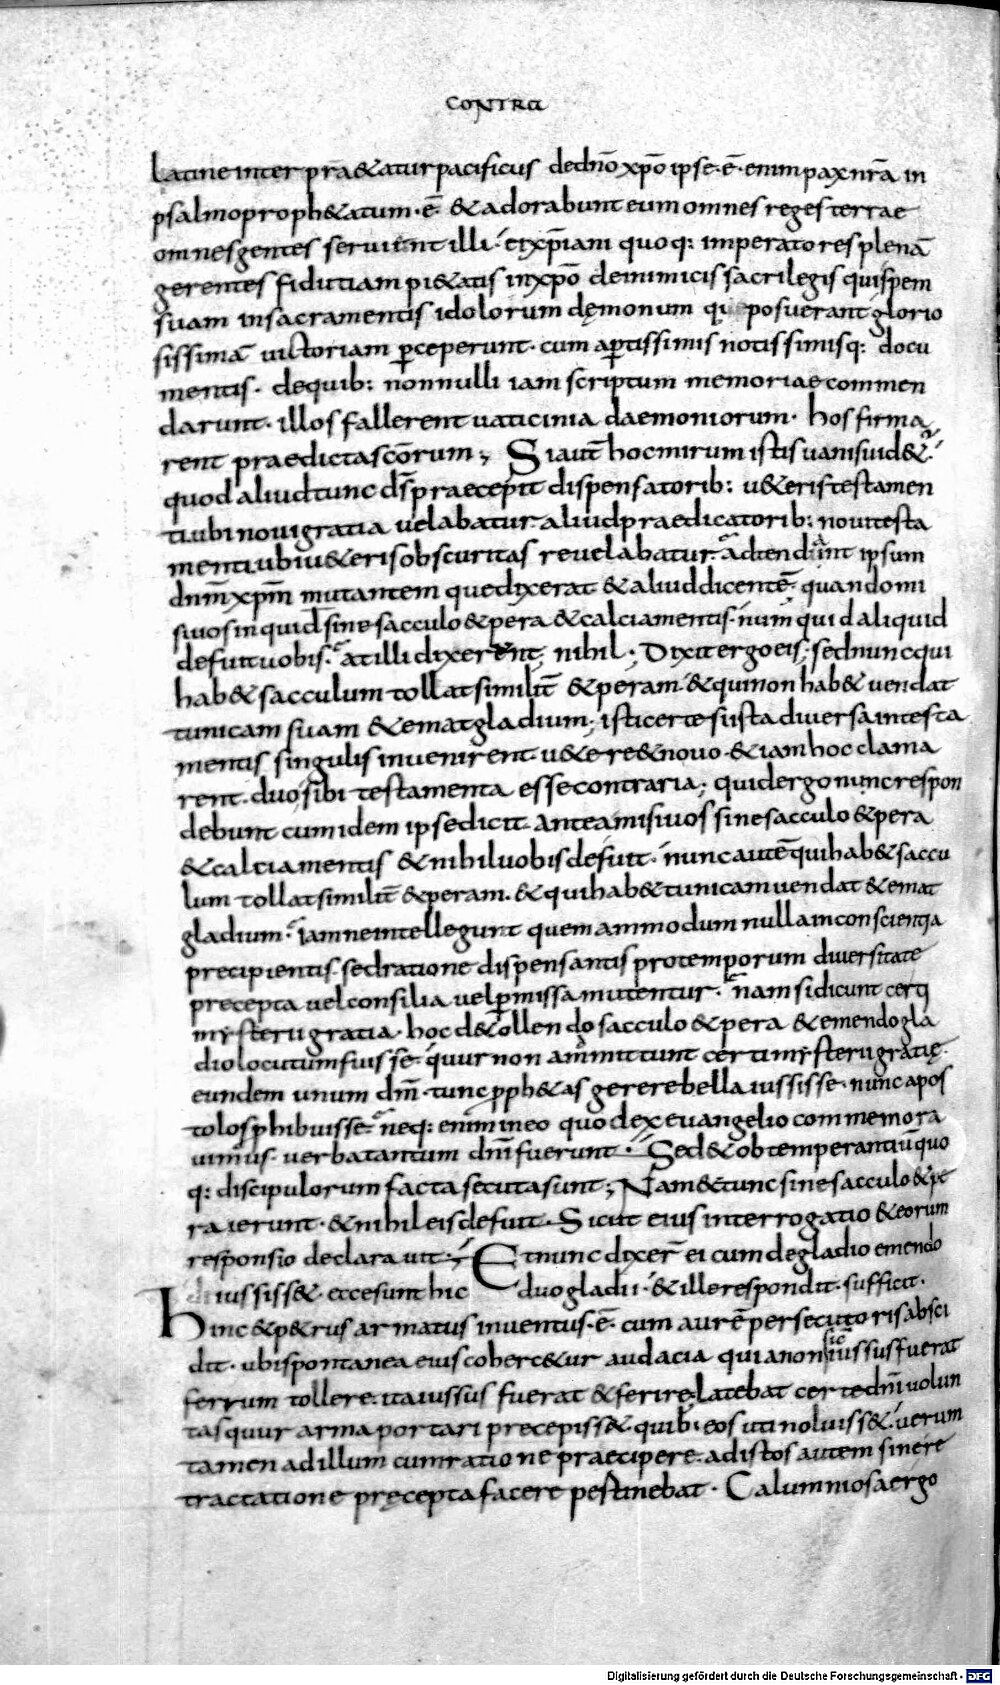 CONTRA
Latine interpr&aelig;tatur pacificus de dn̄o xp̄o ipse·ē·enim pax nr̄a in
psalmo proph&atum·ē· & adorabunt eum omnes reges terrae
omnes gentes servient illi· et xp̄iani quoq: imperatores plenā
gerentes fidutiam pi&atis in xp̄o de inimicis sacrilegis qui spem
suam in sacramentis idolorum dęmonum que posuerant glorio
sissimā victoriam perceperunt· cum apertissimis notissimisq: docu
mentis· de quib: nonnulli iam scriptum memoriae commen
darunt· illos fallerent vaticinia daemoniorum· hos firma
rent praedicta sc̄orum; Si aut̄ hoc mirum istis vanis vid&ur
quod aliud tunc ds̄ praecepit dispensatorib: v&eris testamen
ti ubi novi gratia velabatur· aliud praedicatorib: novi testa
menti ubi v&eris obscuritas revelabatur· adtendant ipsum
dn̄m xp̄m mutantem que dixerat & aliud dicentē· quando mi
si vos inquid sine sacculo & pera & calciamentis· numquid aliquid
defuit vobis· at illi dixerunt nihil; Dixit ergo eis; sed nunc qui
hab& sacculum tollat similit̄ & peram· & qui non hab& vendat
tunicam suam & emat gladium; isti certe si ista diversa in testa
mentis singulis invenirent v&ere & novo· &iam hoc clama
rent· duo sibi testamenta esse contraria; quid ergo nunc respon
debunt cum idem ipse dicit· antea misi vos sine sacculo & pera
& calciamentis & nihil vobis defuit· nunc autē qui hab& saccu
lum tollat similit̄ & peram· & qui hab& tunicam vendat & emat
gladium· iamne intellegunt quemammodum nulla inconscientia
precipientis· sed ratione dispensantis pro temporum diversitate
precepta vel consilia vel permissa mutentur· nam si dicunt certi
mysterii gratia· hoc de tollendo sacculo & pera & emendo gla
dio locutum fuisse· quur non ammittunt certi mysterii gratię·
eundem unum dm̄· tunc proph&as gerere bella iussisse· nunc apos
tolos prohibuisse· neq: enim in eo quod ex evangelio commemora
vimus· verba tantum dn̄i fuerunt· Sed & obtemperantiū quo
q: discipulorum facta secuta sunt; Nam & tunc sine sacculo & pe
ra ierunt· & nihil eis defuit· Sicut eius interrogatio & eorum
responsio declaravit· Et nunc dixer̄ ei cum de gladio emendo
iussiss&· ecce sunt hic duo gladii· & ille respondit· sufficit·
Hinc & p&rus armatus inventus·ē· cum aurē persecutoris absci
dit· ubi spontanea eius coherc&ur audacia quia non sic iussus fuerat
ferrum tollere· uta iussus fuerat & ferire· latebat certe dn̄i volun
tas quur arma portari precepiss&· quib: eos uti noluiss&· verum
tamen ad illum cum ratione praecipere· ad istos autem sine re
tractatione pręcepta facere pertinebat· Calumniosa ergo
Digitalisierung gefördert durch die Deutsche Forschungsgemeinschaft - DFG